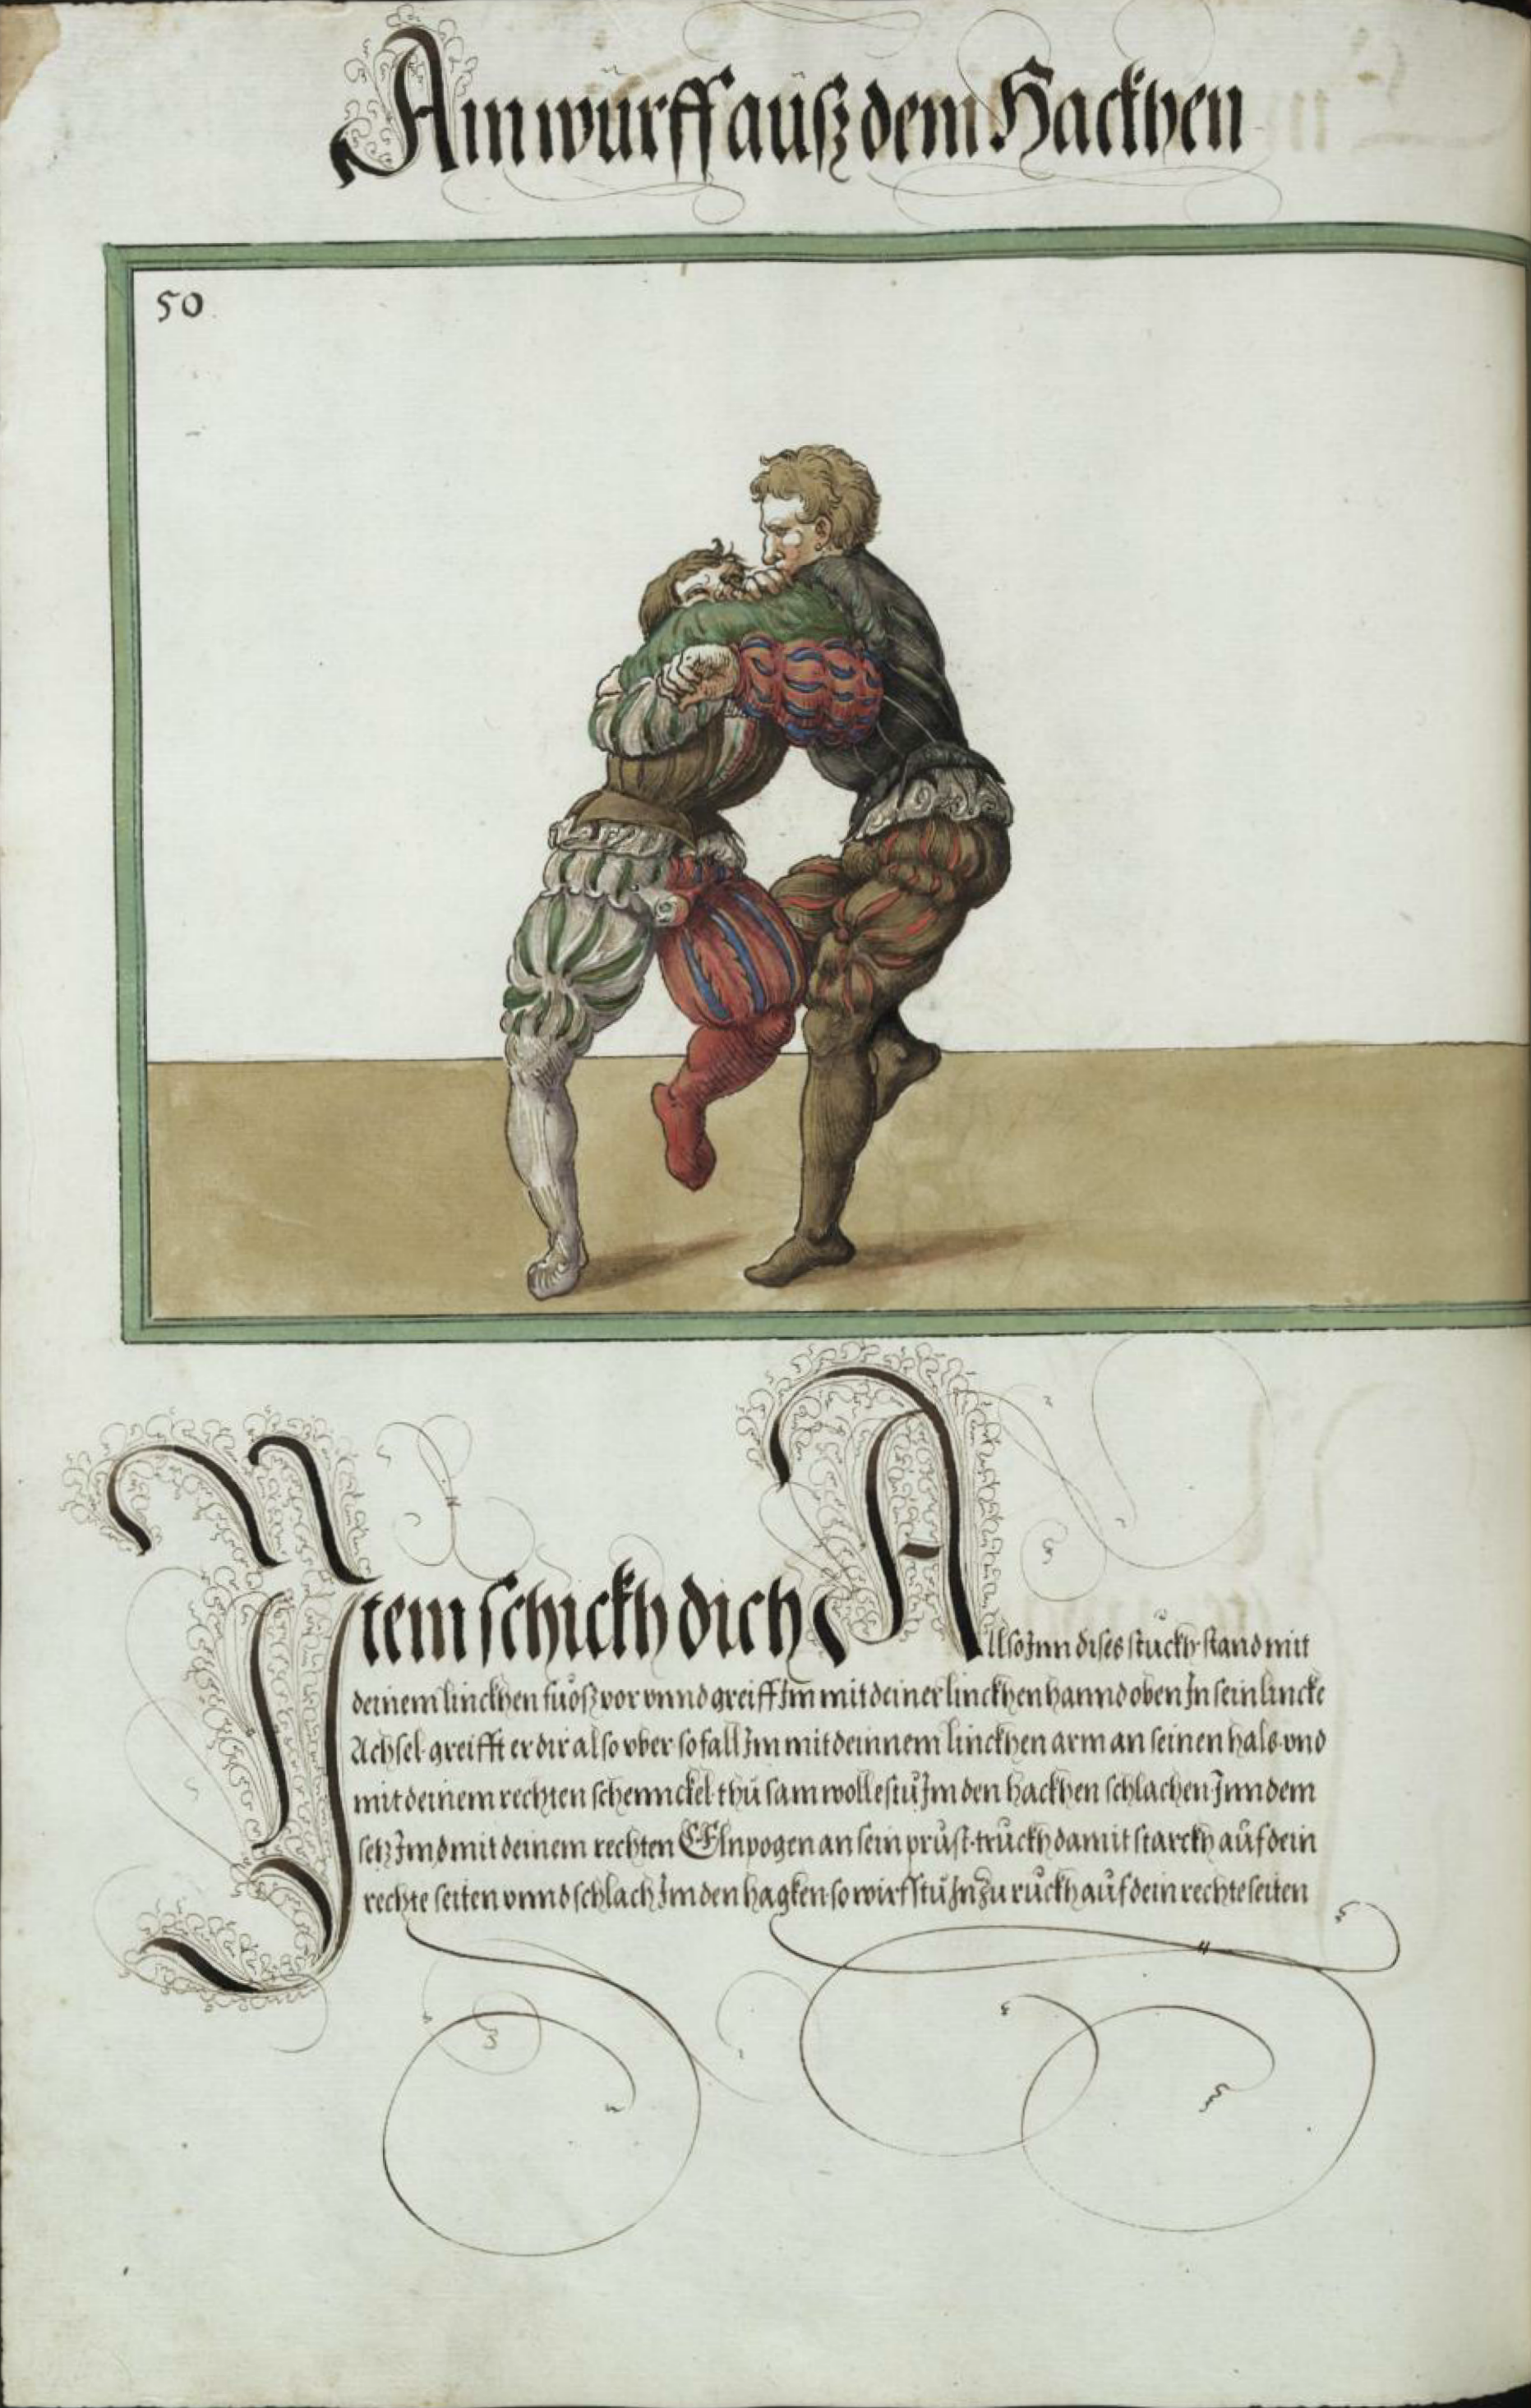 Ain wůrff auß dem Hackhen
50
Item schickh dich Allso Inn dises stůckh stand mit
deinem linckhen fuoß vor unnd greiff Im mit deiner linckhen hannd oben In sein lincke
Achsel greifft er dir also uber so fall Im mit deinnem linckhen arm an seinen hals und
mit deinem rechten schennckel thů sam wollestu Im den hackhen schlachen Inn dem
setz Imd mit deinem rechten Elnpogen an sein průst trůckh damit starckh aůf dein
rechte seiten unnd schlach Im den hagken so wirfstů In zu růckh aůf dein rechte seiten